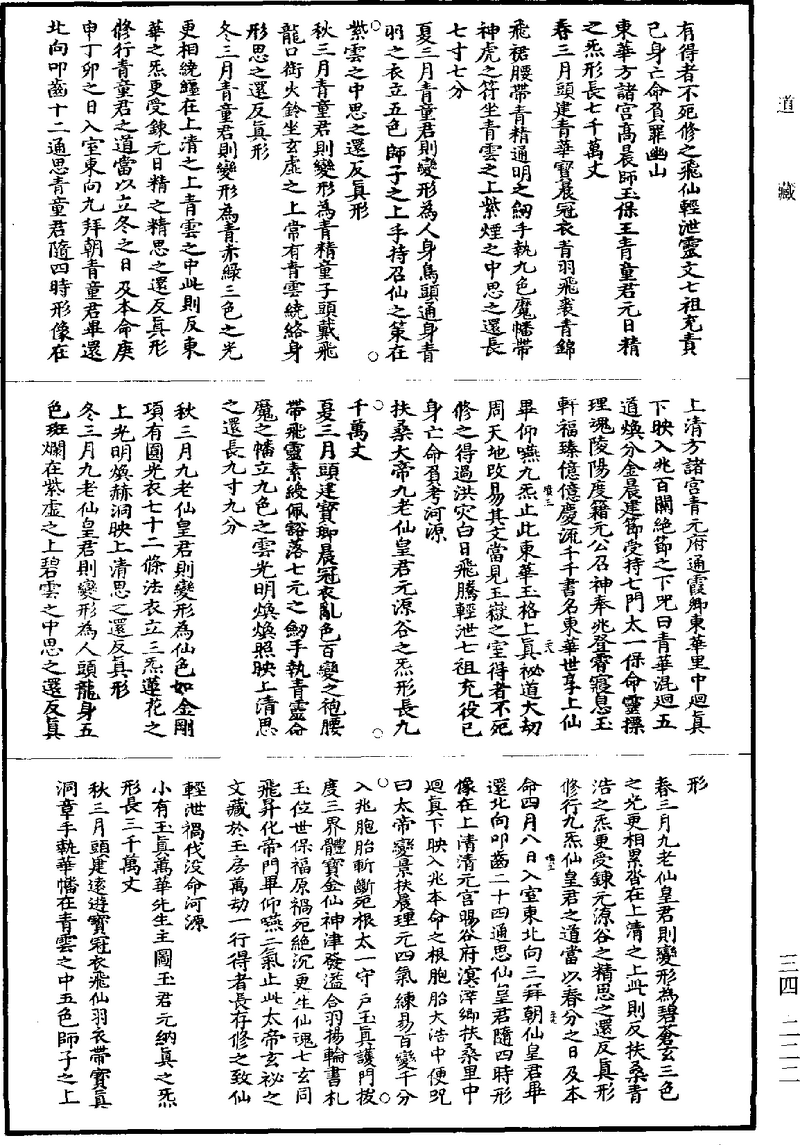 道藏
有得者不死修之飛仙輕泄靈文七祖充責
己身亡命負罪幽山
東華方諸宮高晨師玉保王青童君元日精
之炁形長七千萬丈
春三月頭建青華寶晨冠衣青羽飛裘青錦
飛裙腰帶青精通明之劒手執九色魔幡帶
神虎之符坐青雲之上紫煙之中思之還長
七寸七分
夏三月青童君則變形為人身鳥頭通身青
羽之衣立五色師子之上手持召仙之策在
紫雲之中思之還反真形
秋三月青童君則變形為青精童子頭戴飛
龍口銜火鈴坐玄虛之上常有青雲繞絡身
形思之還反真形
冬三月青童君則變形為青赤綠三色之光
更相繞纏在上清之上青雲之中此則反東
華之炁更受鍊元日精之精思之還反真形
修行青童君之道當以立冬之日及本命庚
申丁卯之日入室東向九拜朝青童君畢還
北向叩齒十二通思青童君隨四時形像在
上清方諸宮青元府通霞鄉東華里中迴真
下映入兆百關絕節之下呪曰青華混迴五
道煥分金晨建節受持七門太一保命靈攥
理魂陵陽度籍元公召神奉兆登霄寢息玉
軒福臻億億慶流千千書名東華世享上仙
畢仰嚥九炁止此東華玉格上真祕道大劫
周天地改易其文當見玉嶽之室得者不死
修之得過洪灾白日飛騰輕泄七祖充役己
身亡命負考河源
扶桑大帝九老仙皇君元源谷之炁形長九
千萬丈
夏三月頭建寶琅晨冠衣亂色百變之袍腰
帶飛靈素綬佩豁落七元之劒手執青靈命
魔之幡立九色之雲光明煥煥照映上清思
之還長九寸九分
秋三月九老仙皇君則變形為仙色如金剛
項有圓光衣七十二條法衣立三炁蓮花之
上光明煥赫洞映上清思之還反真形
冬三月九老仙皇君則變形為人頭龍身五
色斑爛在紫虛之上碧雲之中思之還反真
形
春三月九老仙皇君則變形為碧蒼玄三色
之光更相累沓在上清之上此則反扶桑青
浩之炁更受鍊元源谷之精思之還反真形
修行九炁仙皇君之道當以春分之日及本
命四月八日入室東北向三拜朝仙皇君畢
還北向叩齒二十四通思仙皇君隨四時形
像在上清清元宮暘谷府溟涬鄉扶桑里中
迴真下映入兆本命之根胞胎大浩中便呪
曰太帝變景扶晨理元四氣練易百變千分
入兆胞胎斬斷死根太一守戶玉真護門拔
度三界體寶金仙神津發溢合羽揚輪書札
玉位世保福原禍死絕沉更生仙魂七玄同
飛昇化帝門畢仰嚥二氣止此太帝玄祕之
文藏於玉房萬劫一行得者長存修之致仙
輕泄禍伐没命河源
小有玉真萬華先生主圖玉君元納真之炁
形長三千萬丈
秋三月頭建遠遊寶冠衣飛仙羽衣帶寶真
洞章手執華幡在青雲之中五色師子之上
三四 二二二